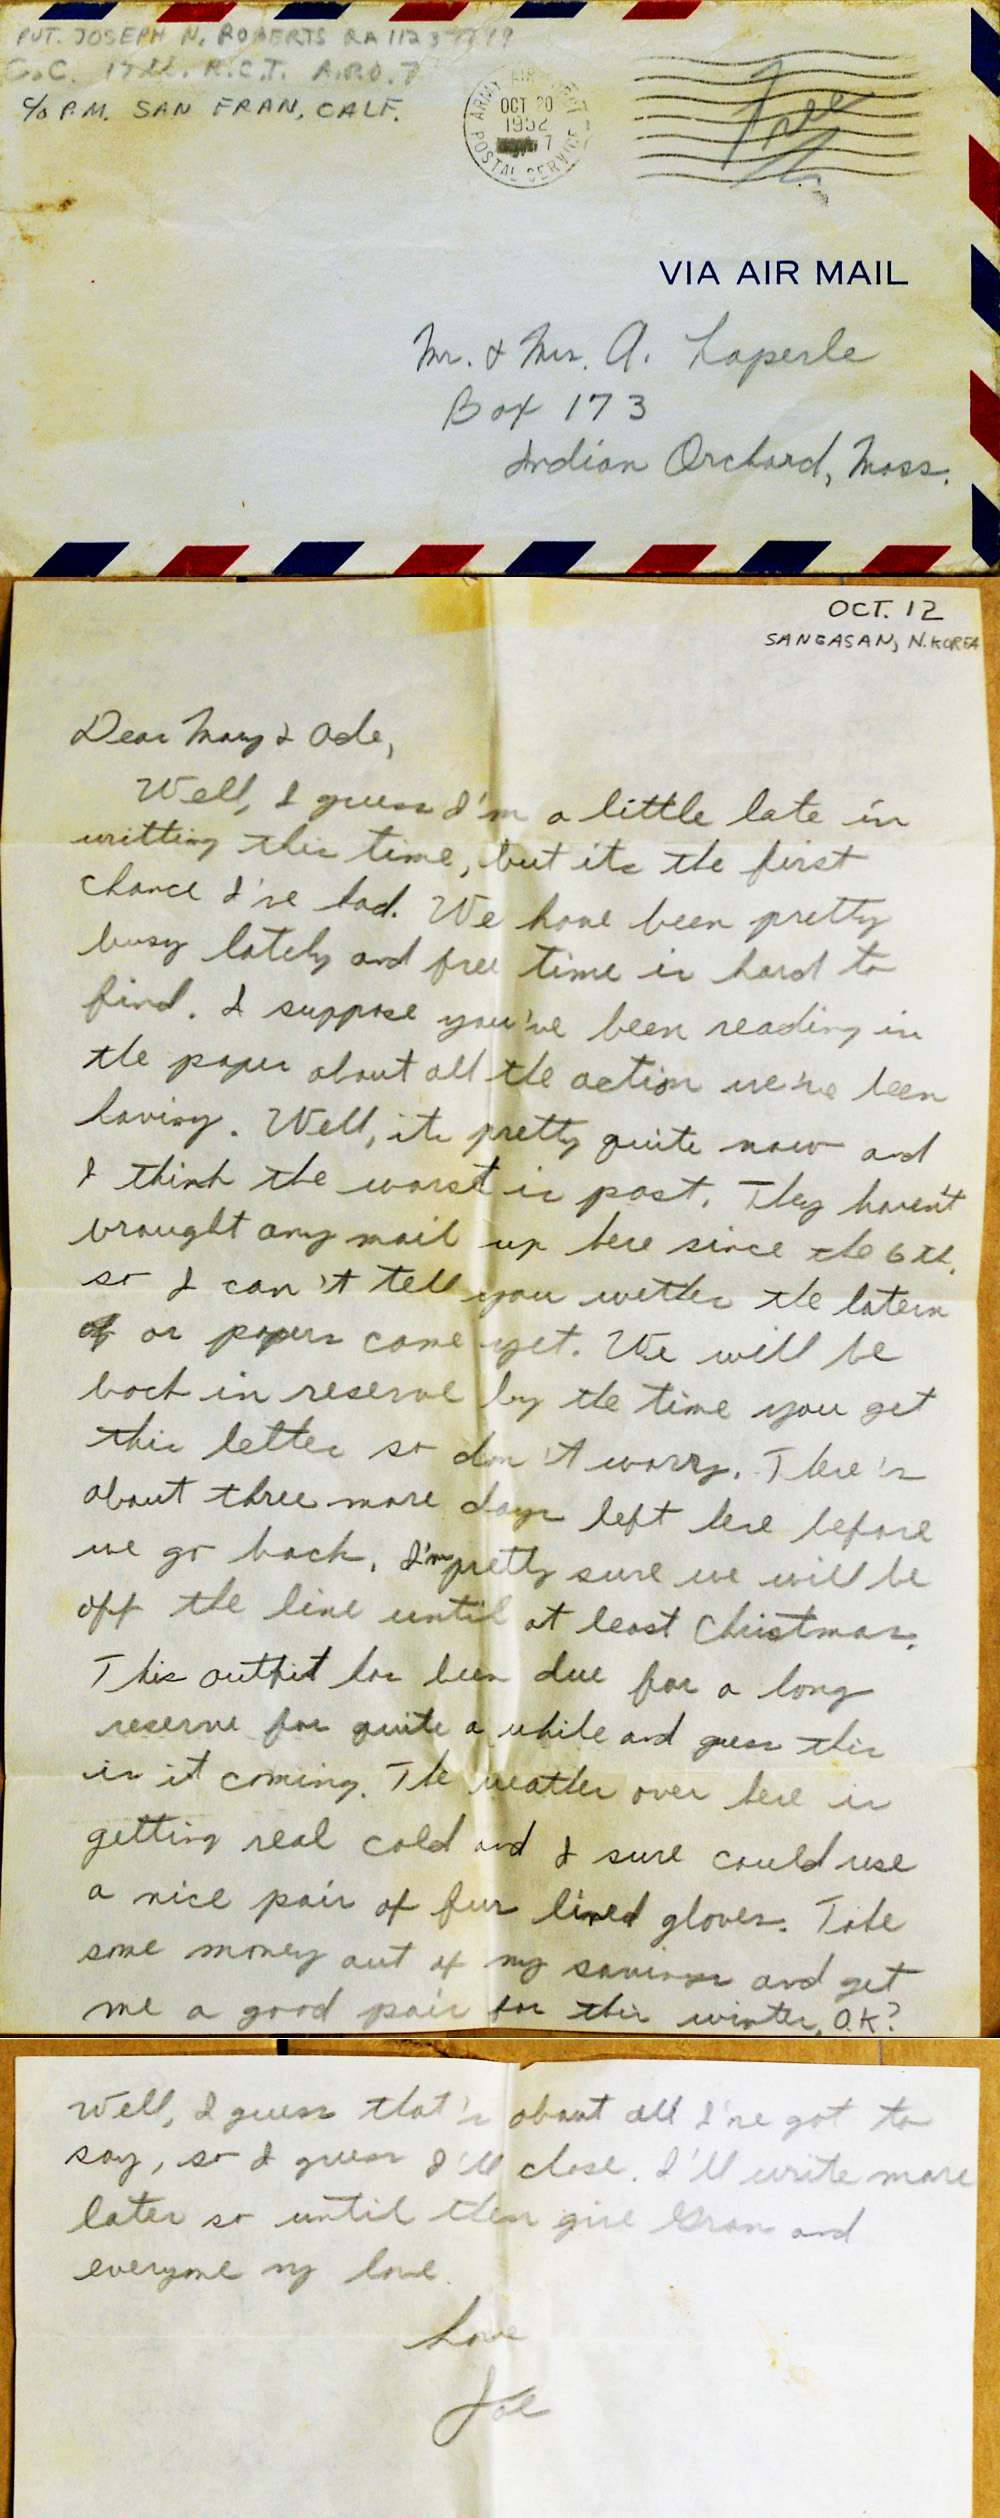 PVT. JOSEPH N. ROBERTS RA 112
C.C. 17th. R.C.T. A.P.O. 7
c/o P.M. SAN FRAN, CALF.
ARMY AIR
OCT 20
1952
7
POSTAL SERVICE
Free
VIA AIR MAIL
Mr. & Mrs. A. Laperle
Box 173
Indian Orchard, Mass.
OCT. 12
SANGASAN, N. KOREA
Dear Mary & Ade,
Well, I guess I'm a little late in
writting this time, but its the first
chance I've had. We have been pretty
busy lately and free time is hard to
find. I suppose you've been reading in
the paper about all the action we've been
having. Well, its pretty quite now and
I think the worst is past. They haven't
brought any mail up here since the 6th.
so I can't tell you wether the latern
or papers came yet. We will be
back in reserve by the time you get
this letter so don't worry. There's
about three more days left here before
we go back. I'm pretty sure we will be
off the line until at least Christmas.
This outfit has been due for a long
reserve for quite a while and guess this
is it coming. The weather over here is
getting real cold and I sure could use
a nice pair of fur lined gloves. Take
some money out of my savings and get
me a good pair for this winter, O.K?
Well, I guess that's about all I've got to
say, so I guess I'll close. I'll write more
later so until then give Gram and
everyone my love.
Love
Joe